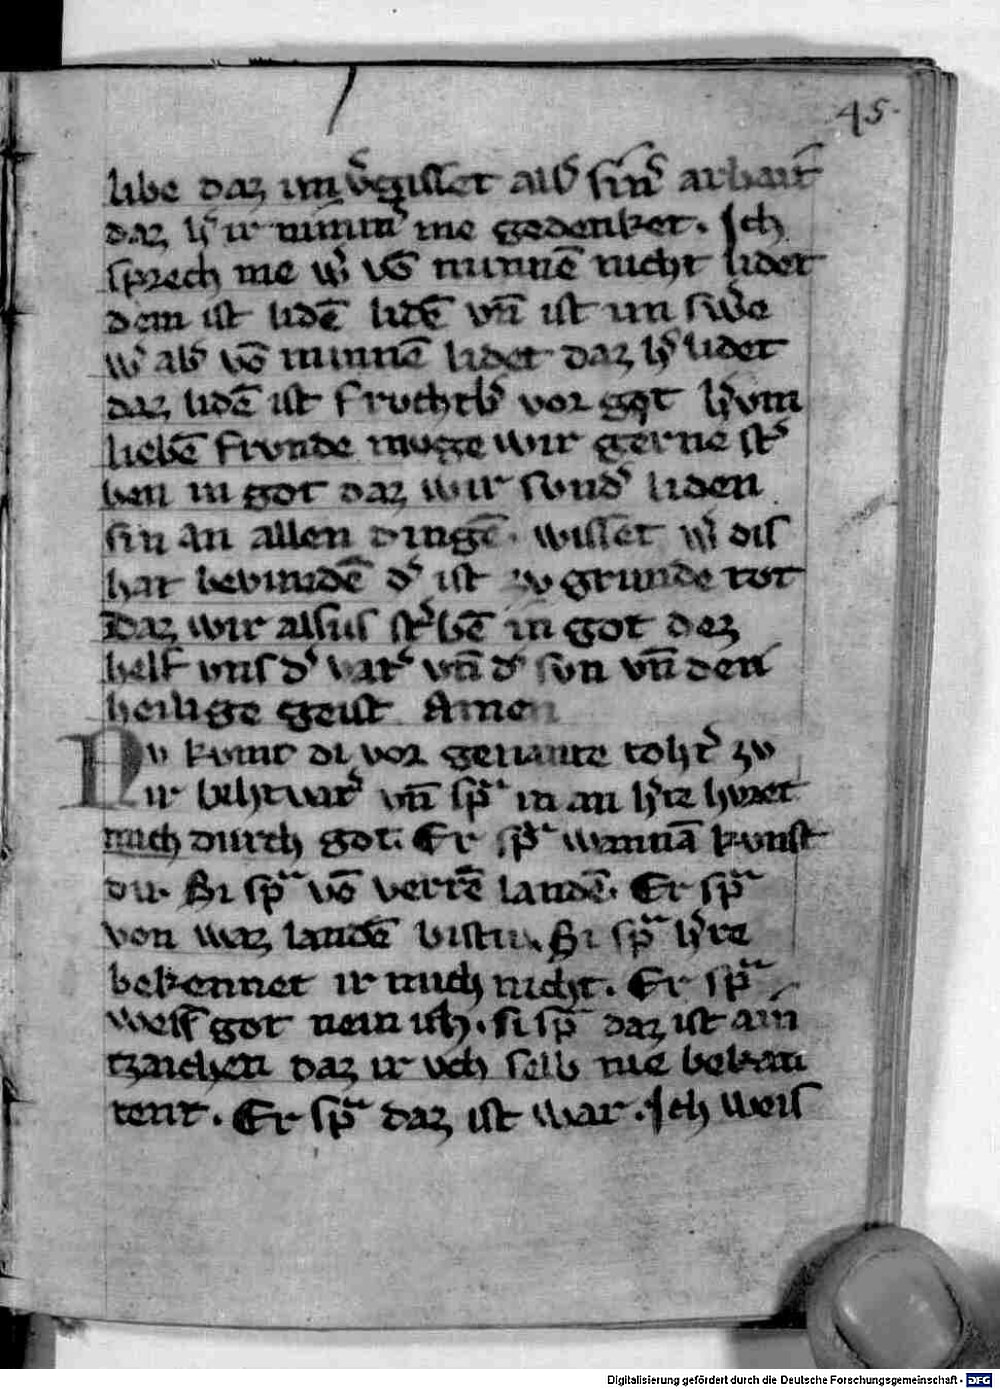 45.
libe daz im v̾gisset alsꝰ sin̾ arbait
daz h̾ ir nimm̾ me gedenket. Ich
sprech me w̾ vō minnē nicht lidet
dem ist lidē lidē vn̄ ist im sw̾e
w̾ abꝰ vō minnē lidet daz h̾ lidet
daz lidē ist fruchtb̾ vor got h̾vm
liebē frvnde moge wir gerne st̾
ben in got daz wir svnd̾ liden
sin an allen dingē. wisset w̾ dis
hat bevindē d̾ ist zv grunde tot
Daz wir alsus st̾bē in got dez
helf vns d̾ vat̾ vn̄ d̾ svn vn̄ den
heilige geist Amen
Nv kvmt di vor genante toht̾ zv
ir bihtvat̾ vn̄ spͣ in an h̾re hvret
mich durch got. Er spͣ wannā kvnst
du. Si spͣ vō verrē landē. Er spͣ
von waz landē bistu. Si spͣ h̾re
bekennet ir mich nicht. Er spͣ
weisſ got nein ich. si spͣ daz ist ain
tzaichen daz ir vch selb nie bekan
tent. Er spͣ daz ist war. Ich weis
Digitalisierung gefördert durch die Deutsche Forschungsgemeinschaft - DFG